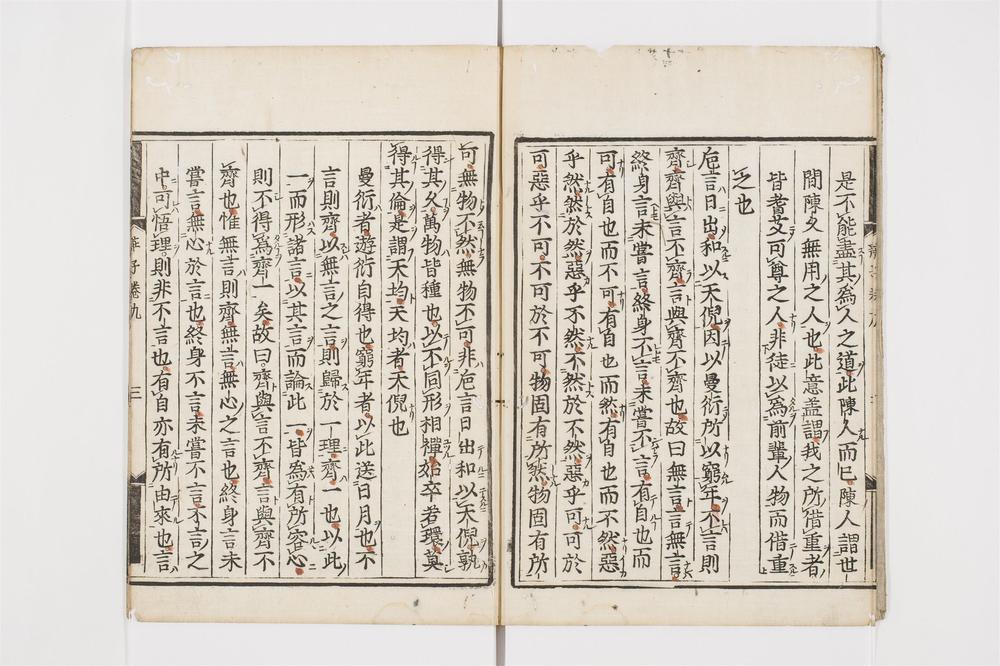 是不能盡其為人之道此陳人而已陳人謂世
間陳久無用之人也此意盖謂我之所借重者
皆耆艾可尊之人非徒以為前輩人物而借重
之也
巵言日出和以天倪因以曼衍所以窮年不言則
齊齊與言不齊言與齊不齊也故曰無言言無言
終身言未嘗言終身不言未嘗不言有自也而
可有自也而不可有自也而然有自也而不然惡
乎然然於然惡乎不然不然於不然惡乎可可於
可惡乎不可不可於不可物固有所然物固有所
可無物不然無物不可非巵言日出和以天倪孰
得其久萬物皆種也以不同形相禪始卒若環莫
得其倫是謂天均天均者天倪也
曼衍者遊衍自得也窮年者以此送日月也不
言則齊以無言之言則歸於一理齊一也以此
一而形諸言以其言而論此一皆為有所容心
則不得為齊一矣故曰齊與言不齊言與齊不
齊也惟無言則齊無言無心之言也終身言未
嘗言無心於言也終身不言未嘗不言不言之
中可悟理則非不言也有自亦有所由來也言
莊子卷九
三